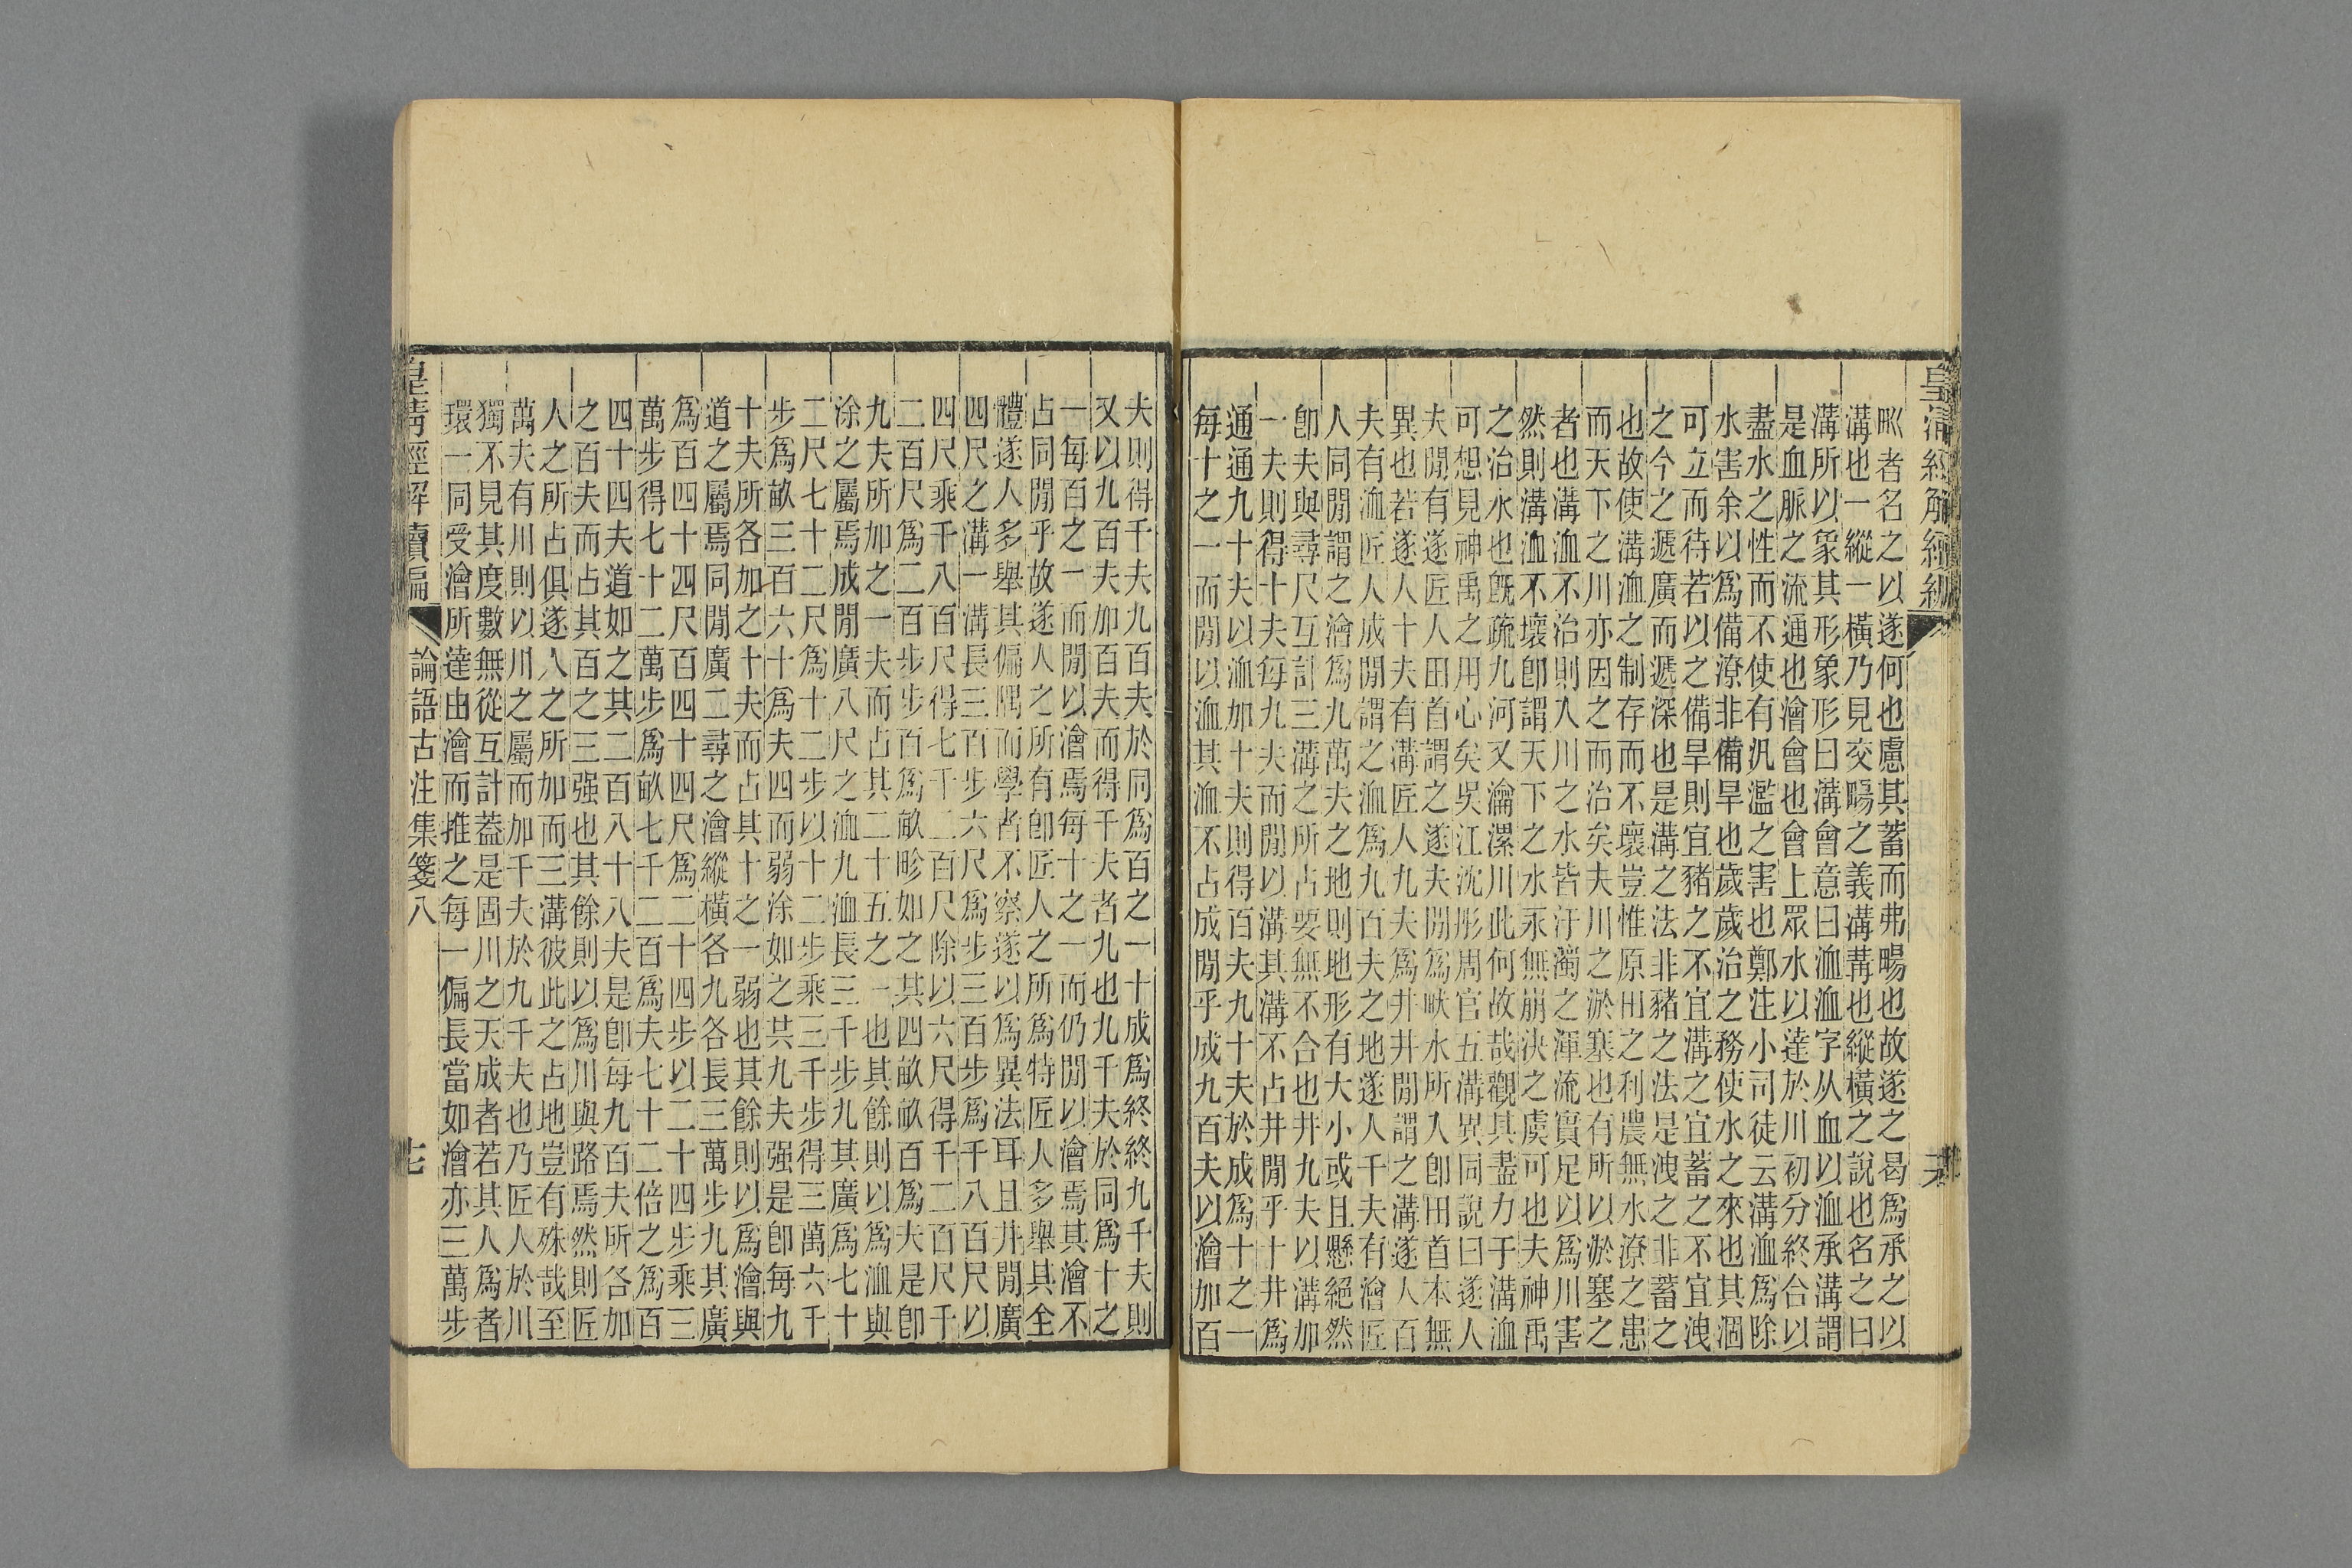 𤰕者名之以遂何也慮其蓄而弗暘也故遂之曷爲承之以
溝也一縱一橫乃見交暘之義溝冓也縱橫之說也名之曰
溝所以象其形象形曰溝會意曰洫洫字从血以洫承溝謂
是血脈之流通也澮會也會上眾水以達於川初分終合以
盡水之性而不使有汎濫之害也鄭注小司徒云溝洫爲除
水害余以爲備潦非備旱也歲歲治之務使水之來也其涸
可立而待若以之備旱則宜豬之不宜溝之宜蓄之不宜洩
之今之遞廣而遞深也是溝之法非豬之之法是洩之非蓄之
也故使溝洫之制存而不壞豈惟原田之利農無水潦之患
而天下之川亦因之而治矣夫川之淤塞也有所以淤塞之
者也溝洫不治則入川之水皆汙濁之渾流實足以爲川害
然則溝洫不壞卽謂天下之水永無崩決之虞可也夫神禹
之治水也旣疏九河又瀹漯川此何故哉觀其盡力于溝洫
可想見神禹之用心矣吳江沈彤周官五溝異同說曰遂人
夫閒有遂匠人田首謂之遂夫閒爲畎水所入卽田首本無
異也若遂人十夫有溝匠人九夫爲井井閒謂之溝遂人百
夫有洫匠人成閒謂之洫爲九百夫之地遂人千夫有澮匠
人同閒謂之澮爲九萬夫之地則地形有大小或且懸絕然
卽夫與尋尺互計三溝之所占要無不合也井九夫以溝加
一夫則得十夫每九夫而閒以溝其溝不占井閒乎十井爲
通通九十夫以洫加十夫則得百夫九十夫於成爲十之一
每十之一而閒以洫其洫不占成閒乎成九百夫以澮加百
皇清經解續編
夫則得千夫九百夫於同爲百之一十成爲終終九千夫則
又以九百夫加百夫而得千夫者九也九千夫於同爲十之
一每百之一而閒以澮焉每十之一而仍閒以澮焉其澮不
占同閒乎故遂人之所有卽匠人之所爲特匠人多舉其全
體遂人多舉其偏隅而學者不察遂以爲異法耳且井閒廣
四尺之溝一溝長三百步六尺爲步三百步爲千八百尺以
四尺乘千八百尺得七千二百尺除以六尺得千二百尺千
二百尺爲二百步步百爲畝畛如之其四畝畝百爲夫是卽
九夫所加之一夫而占其二十五之一也其餘則以爲洫與
涂之屬焉成閒廣八尺之洫九洫長三千步九其廣爲七十
二尺七十二尺爲十二步以十二步乘三千步得三萬六千
步爲畝三百六十爲夫四而弱涂如之共九夫强是卽每九
十夫所各加之十夫而占其十之一弱也其餘則以爲澮與
道之屬焉同閒廣二尋之澮縱橫各九各長三萬步九其廣
爲百四十四尺百四十四尺爲二十四步以二十四步乘三
萬步得七十二萬步爲畝七千二百爲夫七十二倍之爲百
四十四夫道如之其二百八十八夫是卽每九百夫所各加
之百夫而占其百之三强也其餘則以爲川與路焉然則匠
人之所占俱遂人之所加而三溝彼此之占地豈有殊哉至
萬夫有川則以川之屬而加千夫於九千夫也乃匠人於川
獨不見其度數無從互計蓋是固川之天成者若其人爲者
環一同受澮所達由澮而推之每一偏長當如澮亦三萬步
皇清經解續編 論語古注集箋八